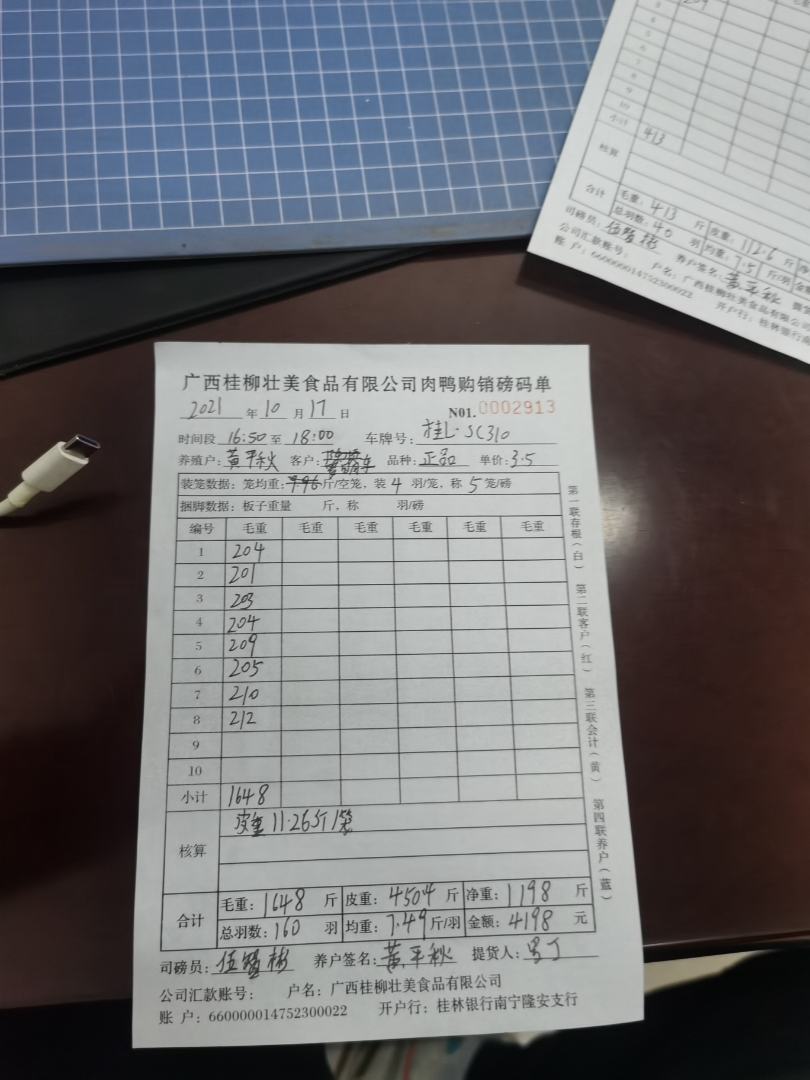 小计
413
核算
合计 毛重: 413 斤 皮重: 112.6 斤
总羽数: 40 羽 均重: 7.5 斤/羽 金
司磅员: 养户签名: 黄平秋
公司汇款账号: 户名: 广西桂柳壮美食品有限公
账 户: 660000014752300022 开户行: 桂林银行南
广西桂柳壮美食品有限公司肉鸭购销磅码单
2021 年 10 月 17 日 N01. 0002913
时间段 16:50 至 18:00 车牌号: 桂L·SC310
养殖户: 黄平秋 客户: 品种: 正品 单价: 3.5
装笼数据: 笼均重: 斤/空笼, 装 4 羽/笼, 称 5 笼/磅
捆脚数据: 板子重量 斤, 称 羽/磅
编号 毛重 毛重 毛重 毛重 毛重 毛重
1 204
2 201
3 203
4 204
5 209
6 205
7 210
8 212
9
10
小计 1648
核算 皮重 11.26斤/笼
合计 毛重: 1648 斤 皮重: 4504 斤 净重: 1198 斤
总羽数: 160 羽 均重: 7.49 斤/羽 金额: 4198 元
司磅员: 养户签名: 黄平秋 提货人:
公司汇款账号: 户名: 广西桂柳壮美食品有限公司
账 户: 660000014752300022 开户行: 桂林银行南宁隆安支行
第一联存根(白) 第二联客户(红) 第三联会计(黄) 第四联养户(蓝)